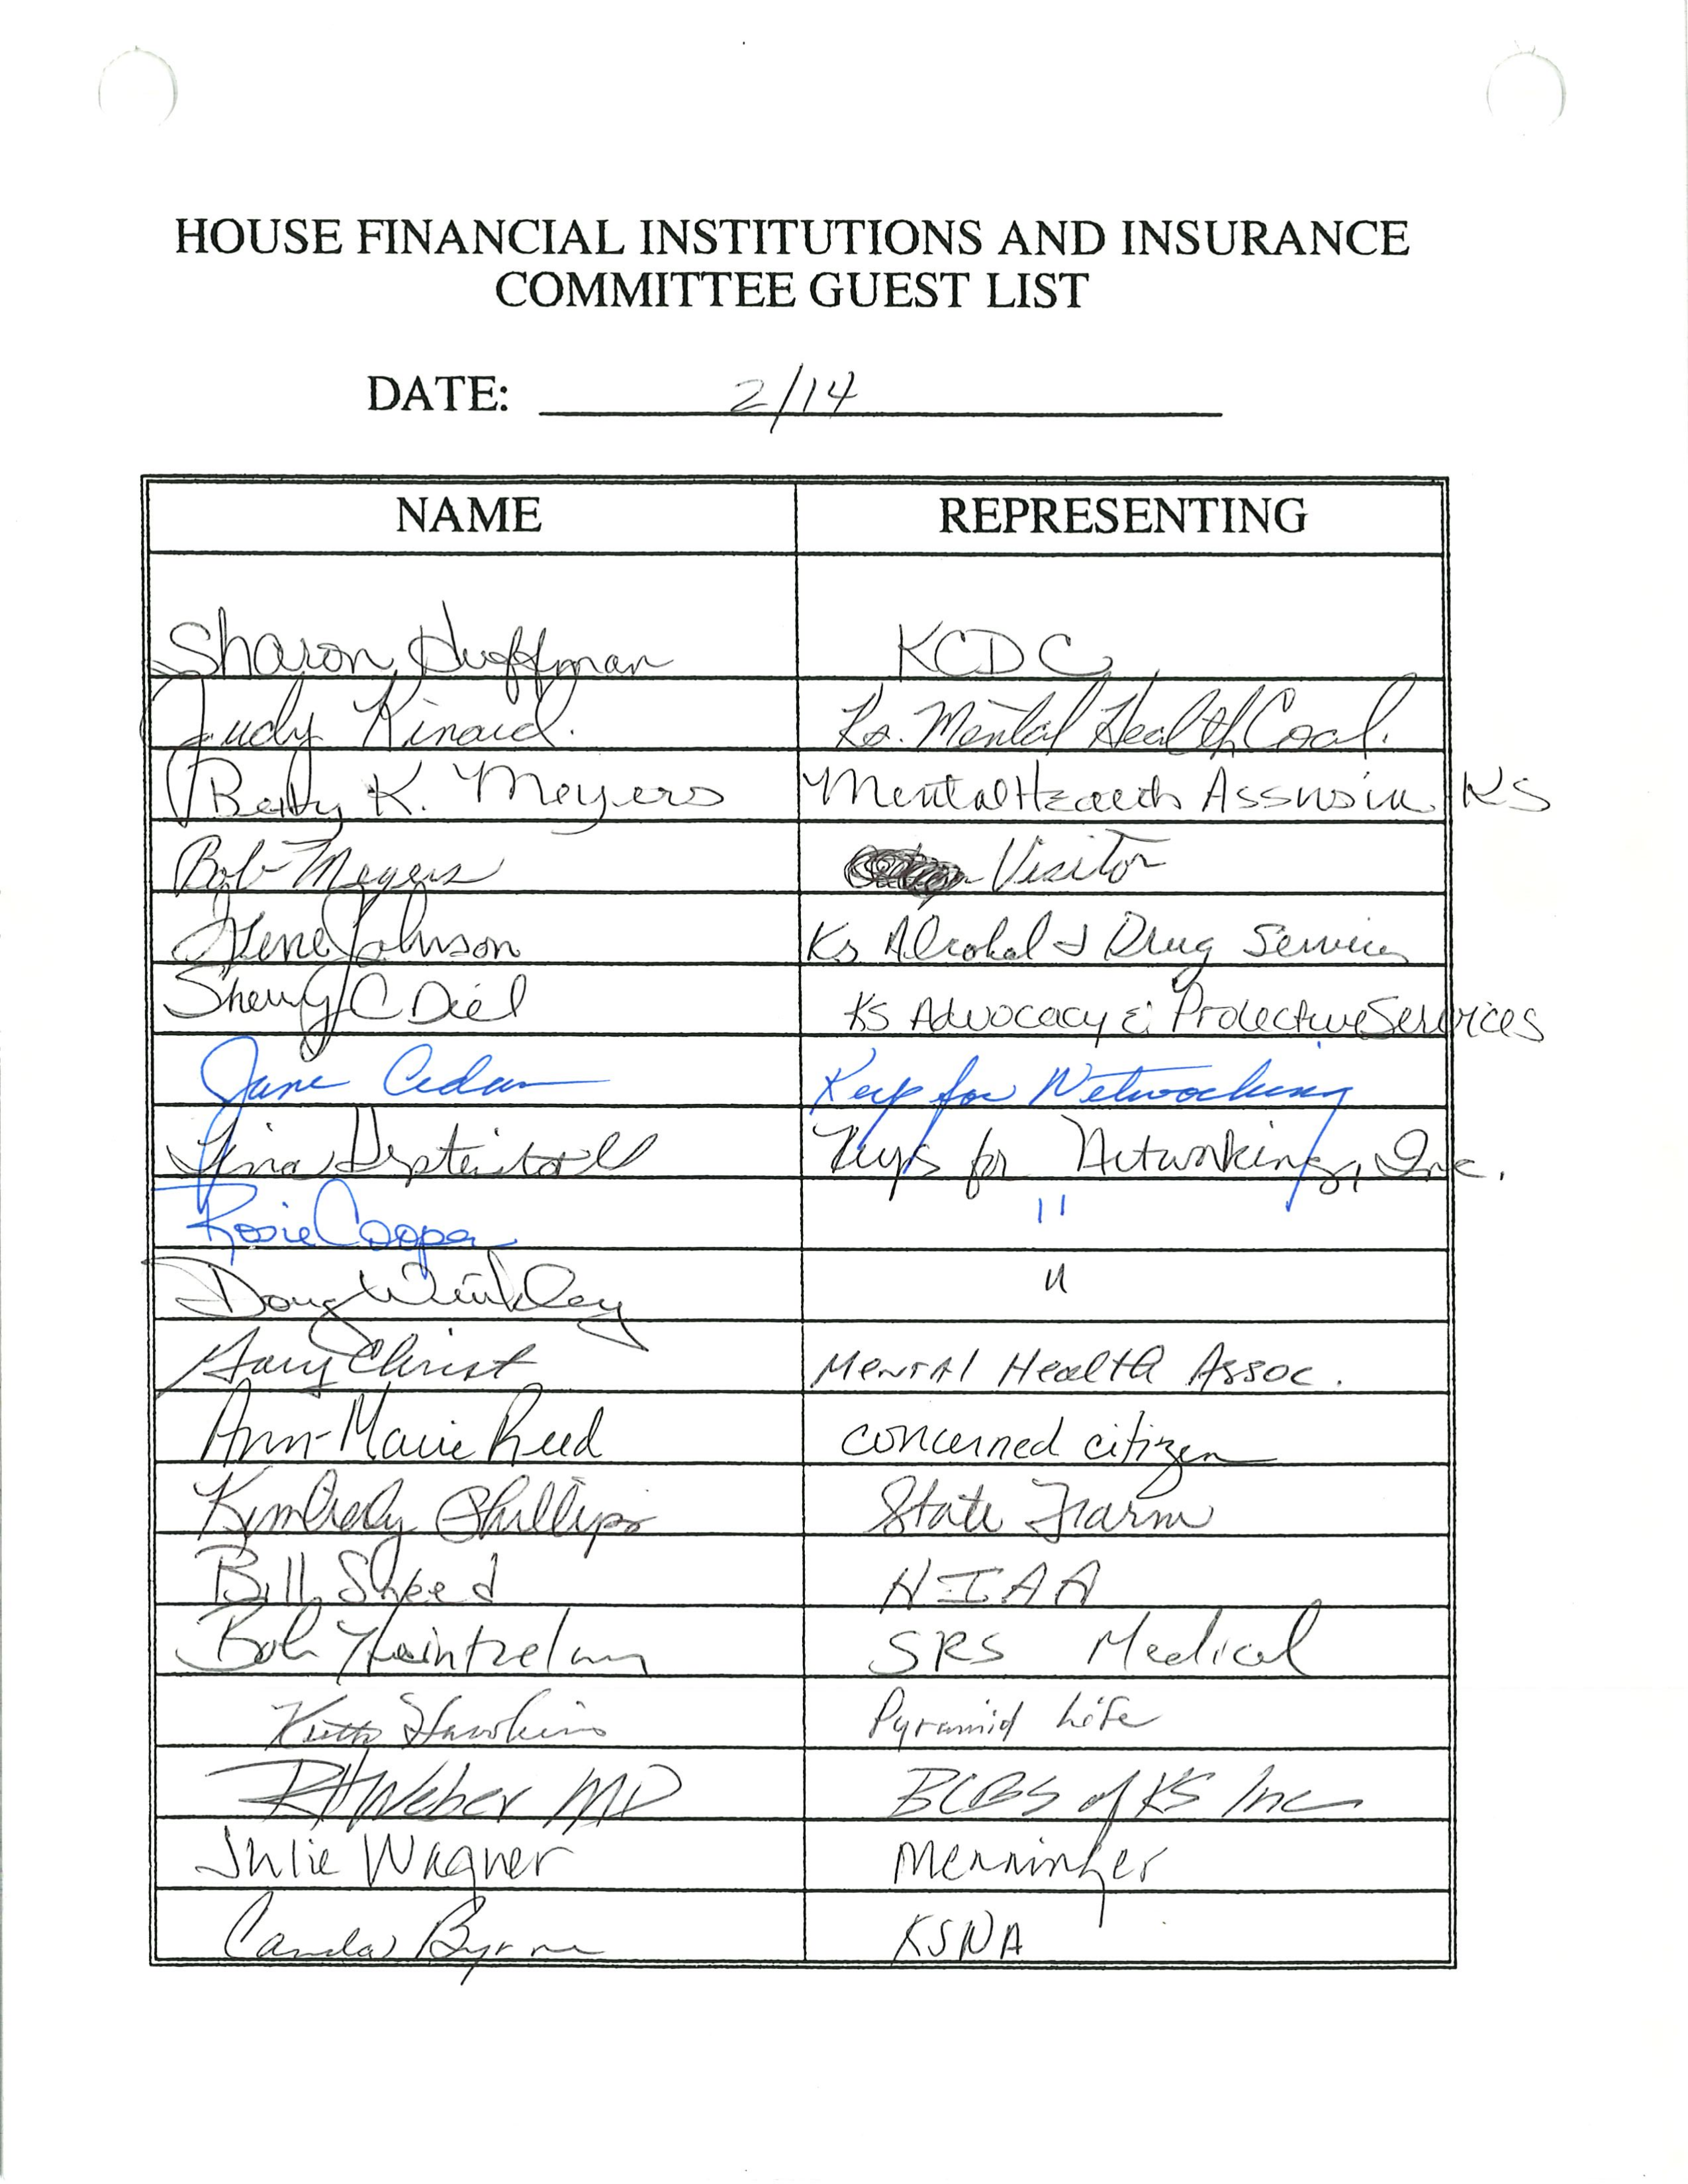 HOUSE FINANCIAL INSTITUTIONS AND INSURANCE
COMMITTEE GUEST LIST
DATE: 2/14
NAME REPRESENTING
Sharon Huffman KCDC
Judy Kinaid. Ks. Mental Health Coal.
Betty K. Meyers Mental Health Assn in KS
Bob Meyers Visitor
Gene Johnson Ks Alcohol & Drug Services
Sherry C Diel KS Advocacy & Protective Services
Jane Keys for Networking
Keys for Networking, Inc.
Rosie Cooper "
Doug "
Gary Christ Mental Health Assoc.
Ann-Marie Reed concerned citizen
Kimberly Phillips State Farm
Bill Sneed HIAA
Bob SRS Medical
Keith Hawkins Pyramid Life
RH Weber MD BCBS of KS Inc
Julie Wagner Menninger
Byrne KSNA